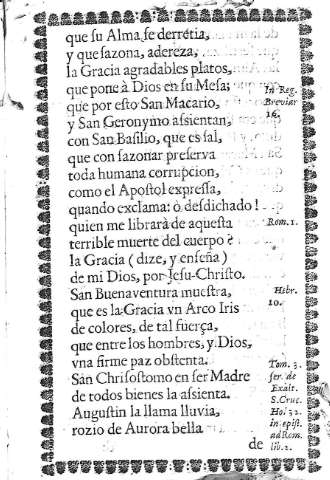 que ſu Alma ſe derretia,
y que ſazona, adereza,
la Gracia agradables platos,
que pone à Dios en ſu Meſa;
In Reg.
que por eſto San Macario,
Breviar
y San Geronymo aſsientan,
16.
con San Baſilio, que es ſal,
que con ſazonar preſerva
toda humana corrupcion,
como el Apoſtol expreſſa,
quando exclama: ò deſdichado!
quien me librarà de aqueſta
Rom. 1.
terrible muerte del cuerpo?
la Gracia (dize, y enſeña)
de mi Dios, por Jeſu-Chriſto.
San Buenaventura mueſtra,
Hebr.
que es la Gracia vn Arco Iris
10.
de colores, de tal fuerça,
que entre los hombres, y Dios,
vna firme paz obſtenta.
Tom. 3.
San Chriſoſtomo en ſer Madre
ſer. de
de todos bienes la aſsienta.
Exalt.
S. Cruc.
Auguſtin la llama lluvia,
Ho. 32.
rozio de Aurora bella
in epiſt.
ad Rom.
de
lib. 2.